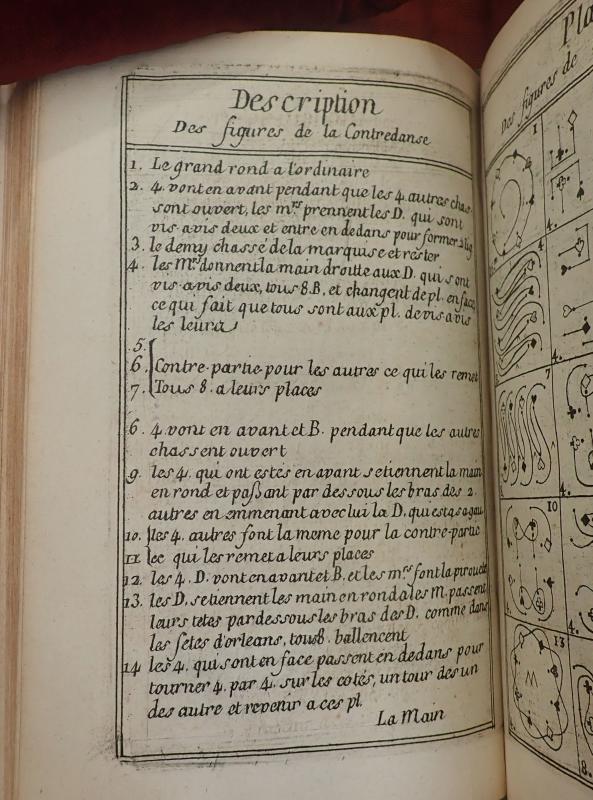 Description
Des figures de la Contredanse
1. Le grand rond a lordinaire
2. 4. vont en avant pendant que les 4. autres chas-
sont ouvert, les m.rs prennent les D. qui sont
vis avis deux et entre en dedans pour former 2 lig
3. le demy chassé de la marquise et rester
4. les M.rs donnent la main droitte aux D. qui sont
vis avis deux, tous 8. B. et changent de pl. en face,
ce qui fait que tous sont aux pl. de vis avis
les leurs
5.
6. Contre-partie pour les autres ce qui les remet
7. Tous 8. a leurs places
6. 4. vont en avant et B. pendant que les autres
chassent ouvert
9. les 4. qui ont estés en avant se tiennent la main
en rond et passant par dessous les bras des 2.
autres en emmenant avec lui la D. qui est a sa gau
10. les 4. autres font la meme pour la contre-partie
11. ce qui les remet a leurs places
12. les 4. D. vont en avant et B. et les m.rs font la pirouete
13. les D. se tiennent les main en rond a les M. passent
leurs tetes par dessous les bras des D. comme dans
les fetes d'orleans, tous 8. ballencent
14 les 4. qui sont en face passent en dedans pour
tourner 4. par 4. sur les cotés, un tour des un
des autre et revenir a ces pl.
La Main
Pla
Des figures de
1
4.
4.
7
4.
10
4.
13
8.